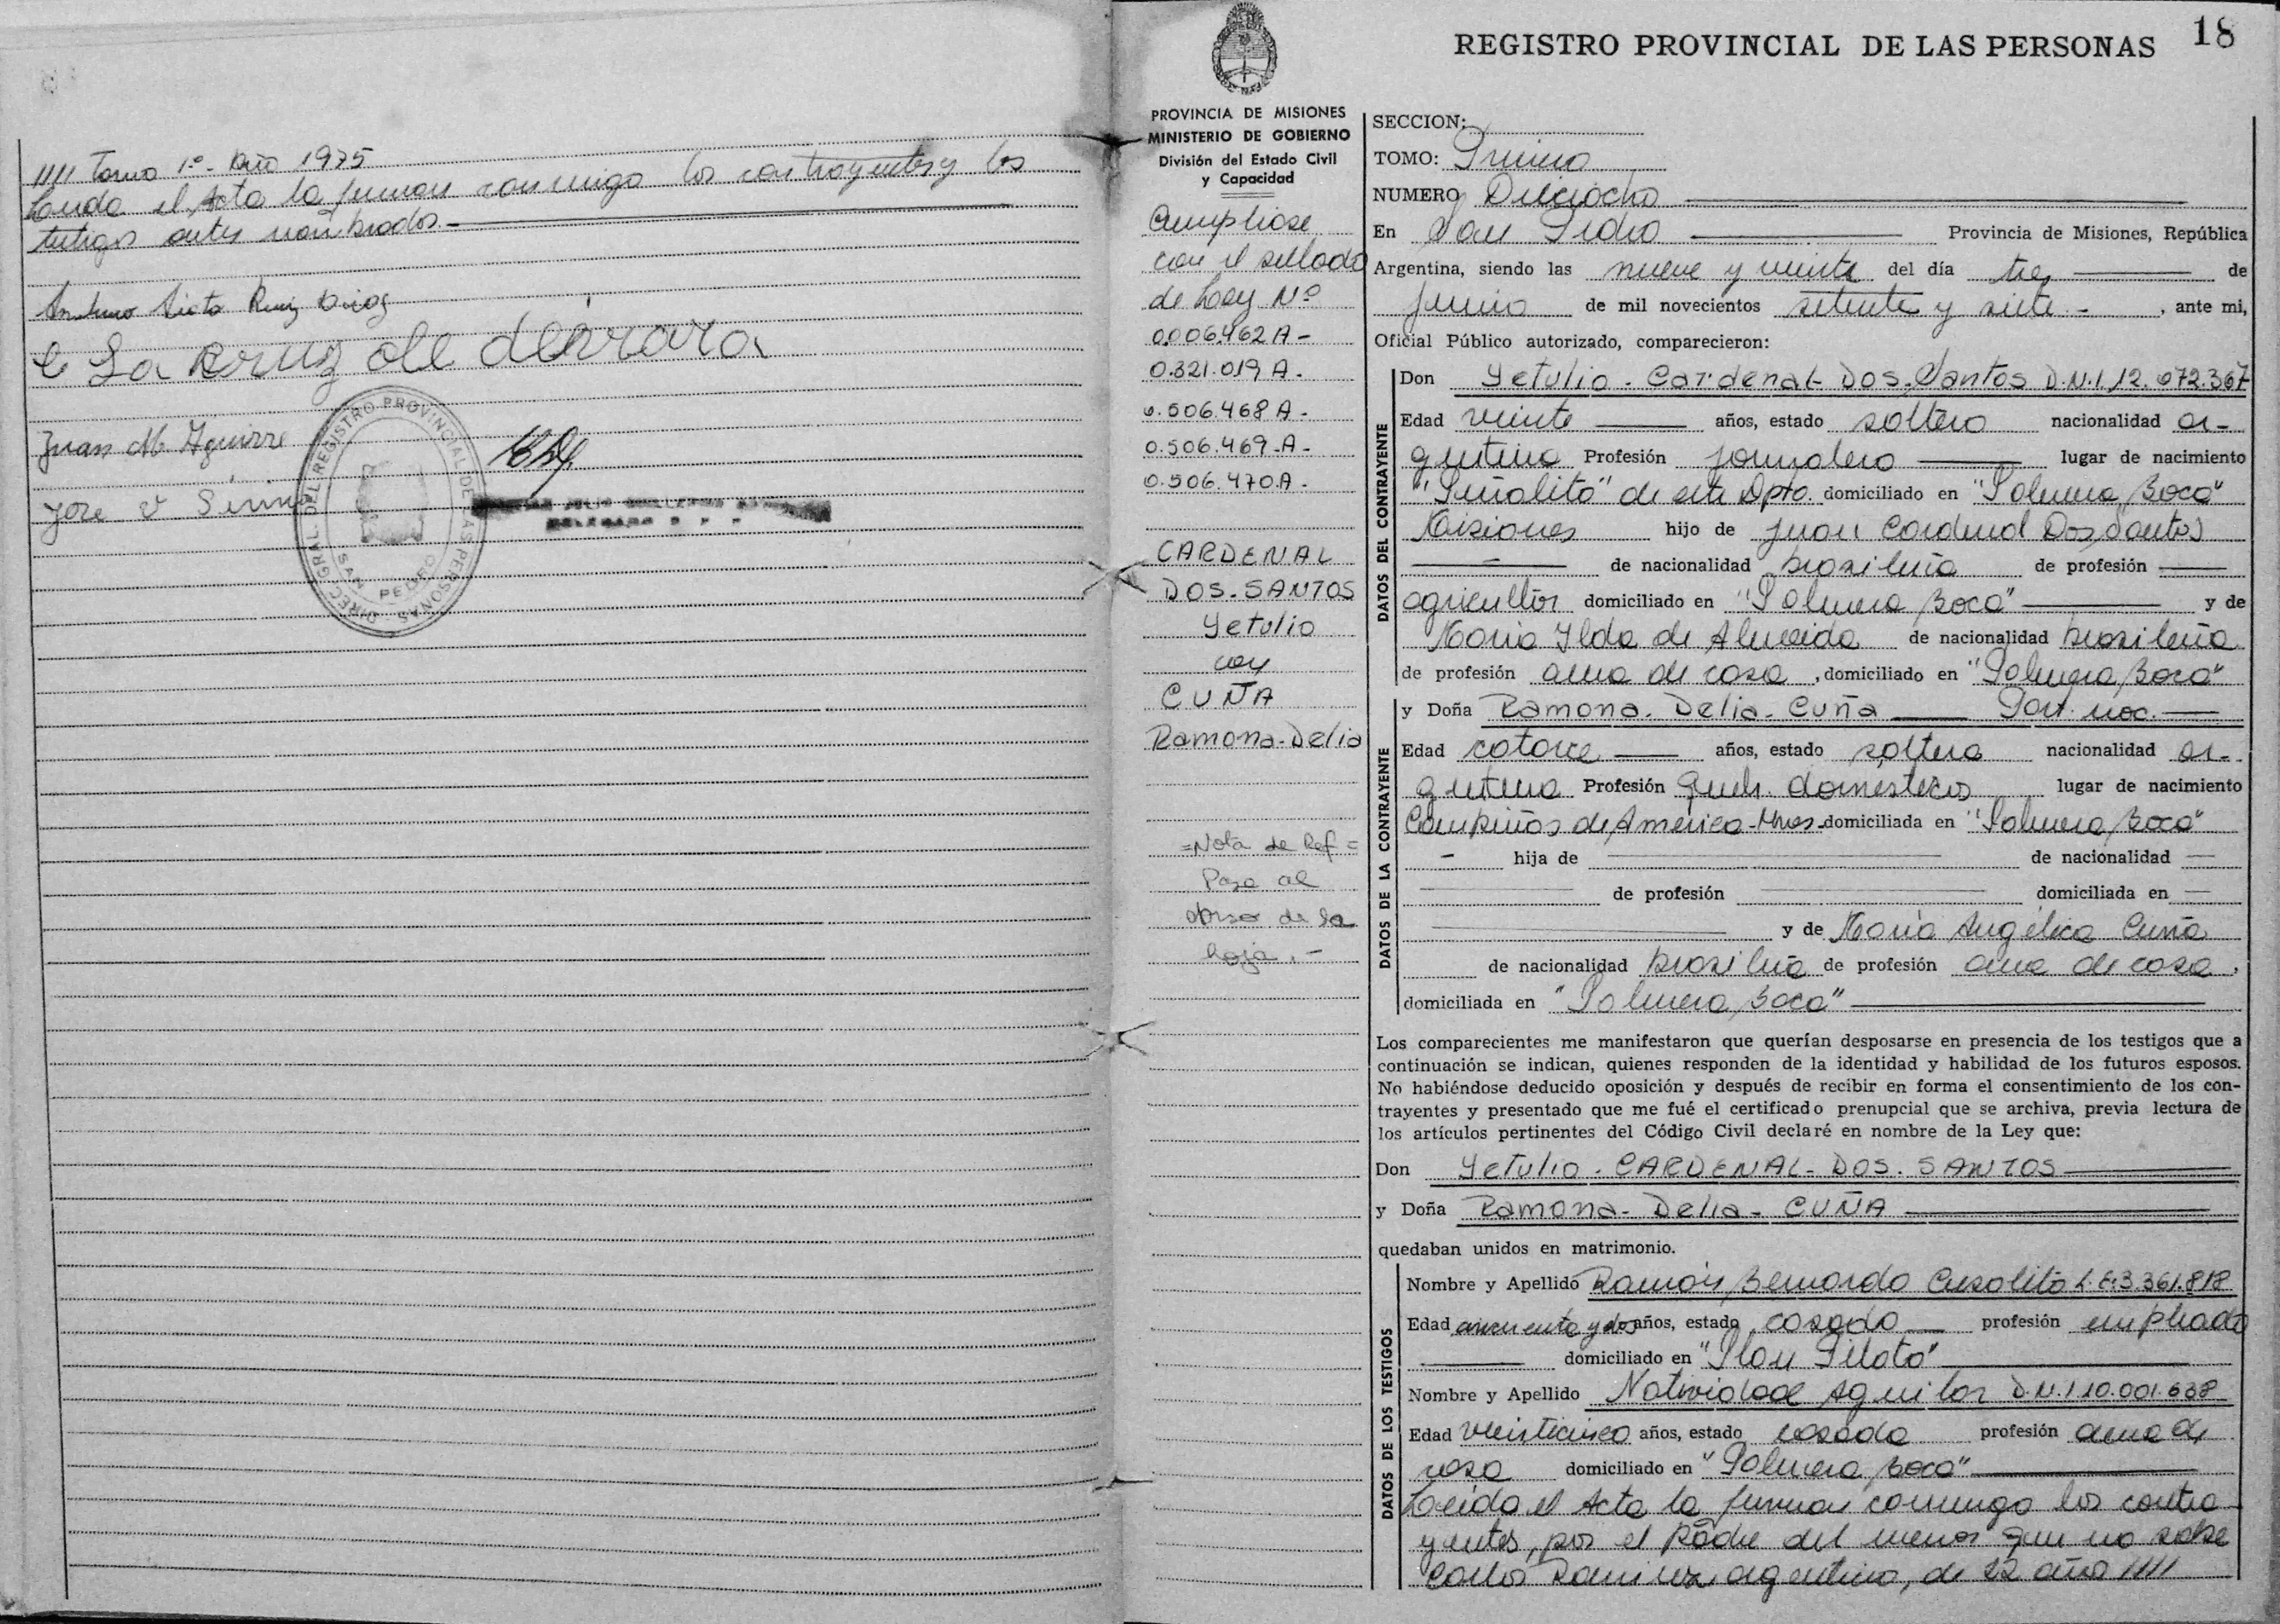 //// Tomo 1º - Año 1975
Leída el Acta la firman conmigo los contrayentes y los
testigos antes nombrados.-
Ruiz Diaz
La cruz de
Juan M. Aguirre
José V
DIREC. GRAL. DEL REGISTRO PROVINCIAL DE LAS PERSONAS
SAN PEDRO
18
REGISTRO PROVINCIAL DE LAS PERSONAS
PROVINCIA DE MISIONES
MINISTERIO DE GOBIERNO
División del Estado Civil
y Capacidad
Cumpliose
con el sellado
de Ley Nº
0.006.462 A-
0.321.019 A.
0.506.468 A-
0.506.469-A-
0.506.470.A-
CARDENAL
DOS-SANTOS
Yetulio
con
CUÑA
Ramona-Delia
=Nota de Ref=
Pasa al
dorso de la
hoja.-
SECCION:
TOMO: Primero
NUMERO Dieciocho
En San Pedro Provincia de Misiones, República
Argentina, siendo las nueve y veinte del día tres de
junio de mil novecientos setenta y siete.- , ante mi,
Oficial Público autorizado, comparecieron:
DATOS DEL CONTRAYENTE
Don Yetulio-Cardenal-Dos-Santos D.N.I 12.072.367
Edad veinte años, estado soltero nacionalidad ar-
gentino Profesión jornalero lugar de nacimiento
"Piñalito" de este Dpto. domiciliado en "Palmera Boca"
Misiones hijo de Juan Cardenal Dos Santos
de nacionalidad brasileña de profesión
agricultor domiciliado en "Palmera Boca" y de
María Ilda de Almeida de nacionalidad brasileña
de profesión ama de casa , domiciliado en "Palmera Boca"
DATOS DE LA CONTRAYENTE
y Doña Ramona-Delia-Cuña Part. nac.
Edad catorce años, estado soltera nacionalidad ar-
gentina Profesión queh. domésticos lugar de nacimiento
Campiñas de América-Mnes- domiciliada en "Palmera Boca"
- hija de de nacionalidad
de profesión domiciliada en
y de María Angélica Cuña
de nacionalidad brasileña de profesión ama de casa,
domiciliada en "Palmera Boca"
Los comparecientes me manifestaron que querían desposarse en presencia de los testigos que a
continuación se indican, quienes responden de la identidad y habilidad de los futuros esposos.
No habiéndose deducido oposición y después de recibir en forma el consentimiento de los con-
trayentes y presentado que me fué el certificado prenupcial que se archiva, previa lectura de
los artículos pertinentes del Código Civil declaré en nombre de la Ley que:
Don Yetulio-CARDENAL-DOS-SANTOS
y Doña Ramona-Delia-CUÑA
quedaban unidos en matrimonio.
DATOS DE LOS TESTIGOS
Nombre y Apellido Ramón Bernardo Cusolito L.E:3.361.818
Edad cincuenta y dos años, estado casado profesión empleado
domiciliado en "Plan Piloto"
Nombre y Apellido Natividad Aguilar D.N.I 10.001.638
Edad veinticinco años, estado casada profesión ama de
casa domiciliado en "Palmera Boca"
Leída el Acta la firman conmigo los contra-
yentes, por el padre del menor que no sabe
Carlos Ramirez argentino, de 22 año ////